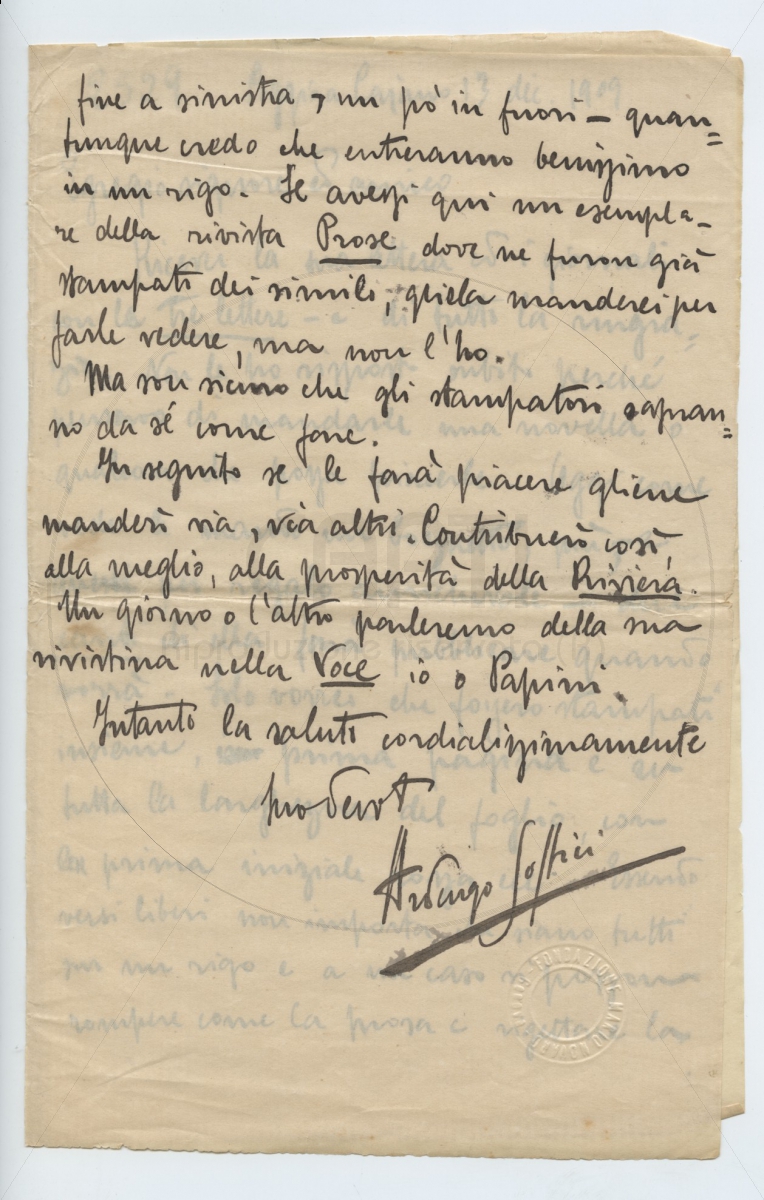 fine a sinistra, un pò in fuori — quan=
tunque credo che entreranno benissimo
in un rigo. Se avessi qui un esempla-
re della rivista Prose dove ne furon già
stampati dei simili, gliela manderei per
farle vedere, ma non l'ho.
Ma son sicuro che gli stampatori sapran=
no da sé come fare.
In seguito se le farà piacere gliene
manderò via, via altri. Contribuerò così,
alla meglio, alla prosperità della Riviera.
Un giorno o l'altro parleremo della sua
rivistina nella Voce io o Papini.
Intanto la saluto cordialissimamente
suo devot
Ardengo Soffici
FONDAZIONE MARIO NOVARO